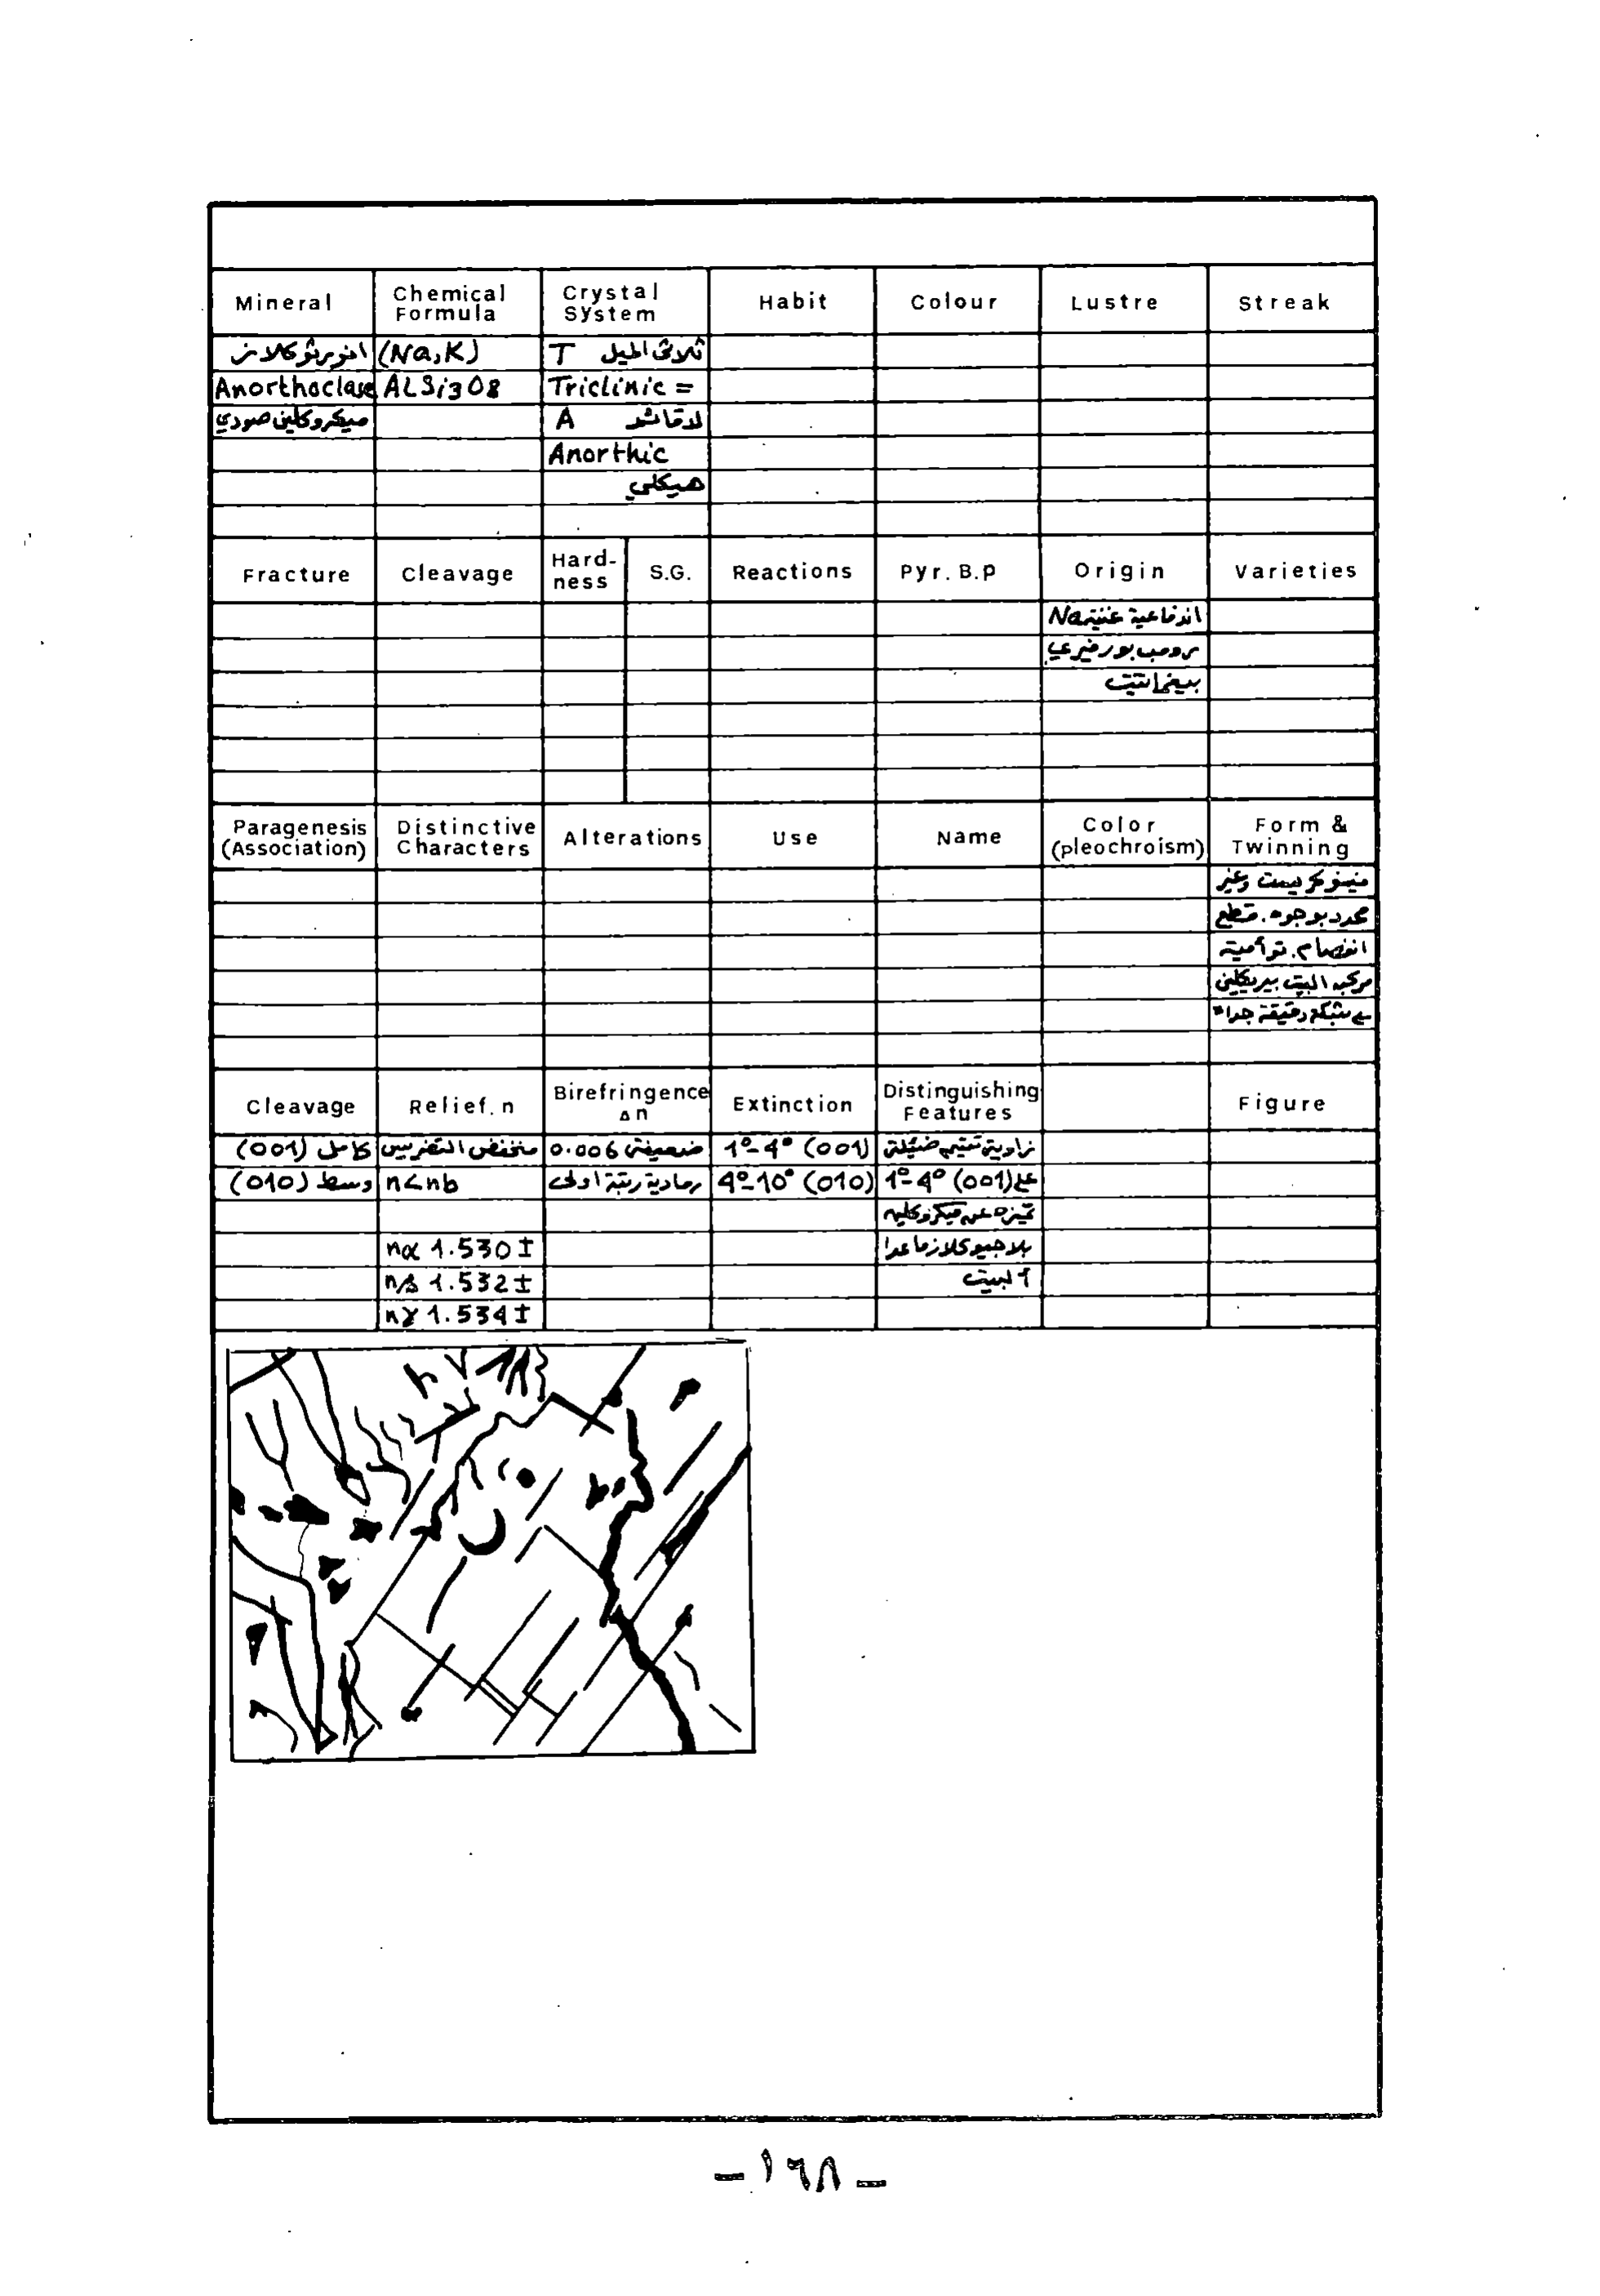 Mineral Chemical Formula Crystal System Habit Colour Lustre Streak
انورثوكلاز (Na,K) T ثلاثي الميل
Anorthoclase ALSi3O8 Triclinic =
ميكروكلين صودي A لاقائم
Anorthic
هيكلي
Fracture Cleavage Hard-ness S.G. Reactions Pyr. B.p Origin Varieties
اندفاعية غنية Na
رومب بورفيري
بيغماتيت
Paragenesis (Association) Distinctive Characters Alterations Use Name Color (pleochroism) Form & Twinning
فينوكريست وغير
محدد بوجوه. قطع
انفصام. توأمية
مركبة البيت بيريكلين
شبكة دقيقة جدا"
Cleavage Relief. n Birefringence Δn Extinction Distinguishing Features Figure
كامل (001) منخفض التضريس ضعيفة 0.006 1°-4° (001) زاوية تعتيم ضئيلة
وسط (010) n<nb رمادية رتبة اولى 4°-10° (010) 1°-4° (001) على
تميزه عن ميكروكلين
nα 1.530 ± بلاجيوكلاز ماعدا
nβ 1.532 ± البيت
nγ 1.534 ±
- ١٦٨ -